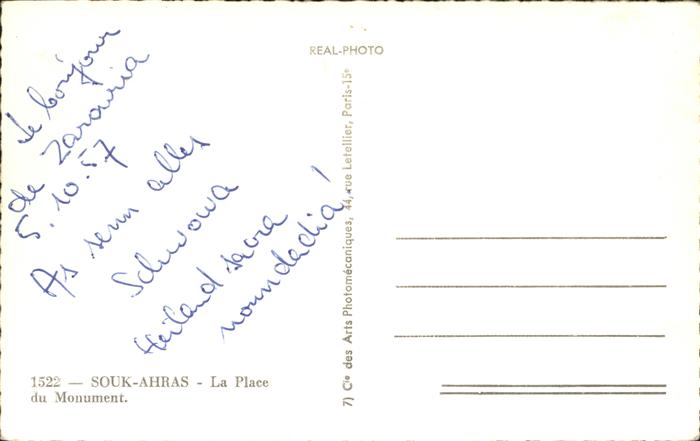 REAL-PHOTO
Le bonjour
de Zarouria
5.10.57
As senn alles
Schwowa
Heiland sacra
noundadia!
7) Cie des Arts Photomécaniques, 44, rue Letellier, Paris-15e
1522 — SOUK-AHRAS - La Place
du Monument.